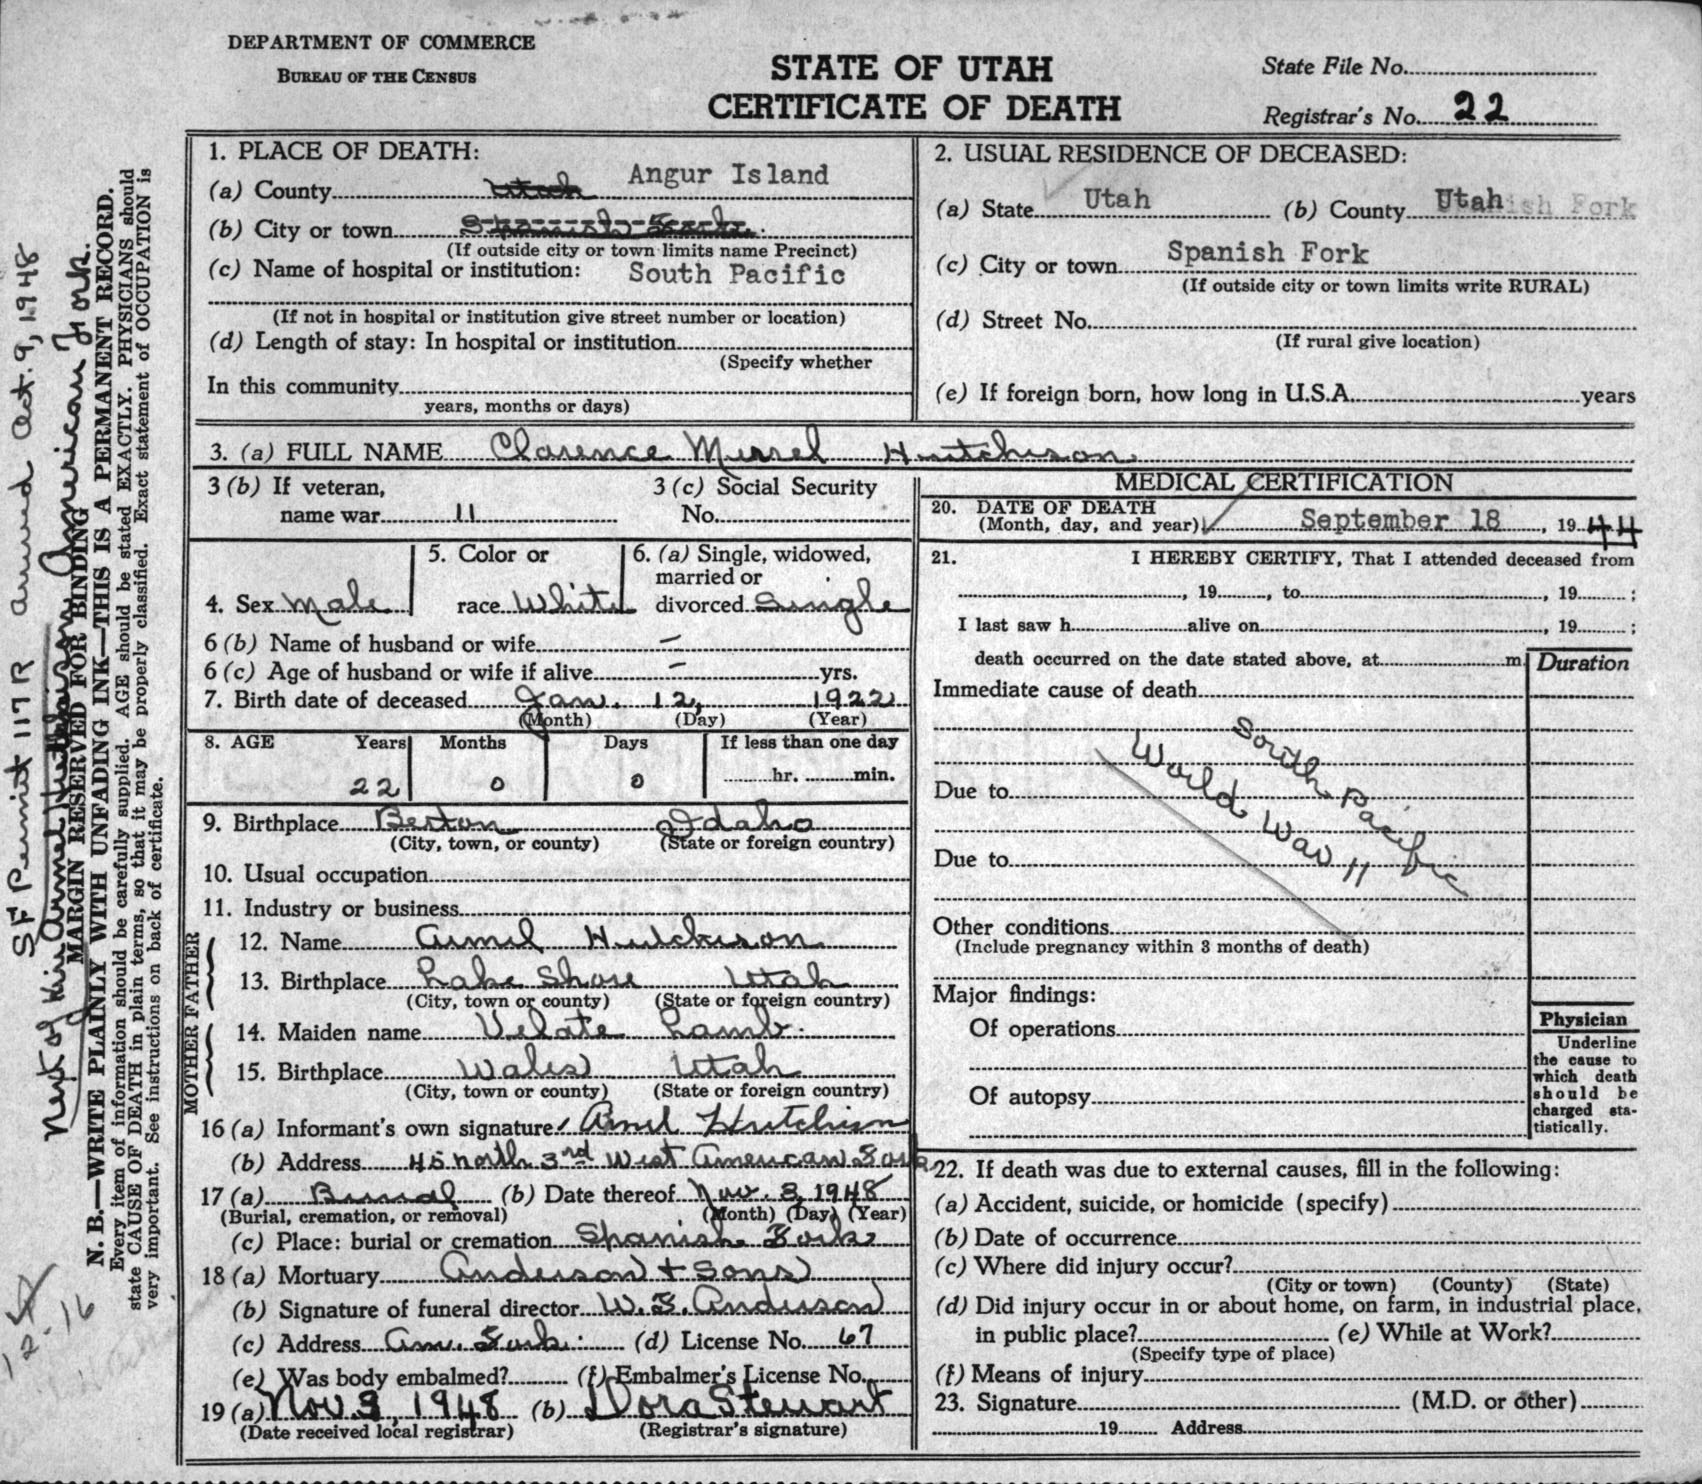 DEPARTMENT OF COMMERCE
BUREAU OF THE CENSUS
STATE OF UTAH
CERTIFICATE OF DEATH
State File No.
Registrar's No. 22
1. PLACE OF DEATH:
(a) County Utah Angur Island
(b) City or town Spanish Fork
(If outside city or town limits name Precinct)
(c) Name of hospital or institution: South Pacific
(If not in hospital or institution give street number or location)
(d) Length of stay: In hospital or institution
(Specify whether
In this community
years, months or days)
2. USUAL RESIDENCE OF DECEASED:
(a) State Utah (b) County Utah
(c) City or town Spanish Fork
(If outside city or town limits write RURAL)
(d) Street No.
(If rural give location)
(e) If foreign born, how long in U.S.A. years
3. (a) FULL NAME Clarence Murrel Hutchison
3 (b) If veteran, 3 (c) Social Security
name war 11 No.
4. Sex Male
5. Color or
race White
6. (a) Single, widowed,
married or
divorced Single
6 (b) Name of husband or wife —
6 (c) Age of husband or wife if alive — yrs.
7. Birth date of deceased Jan. 12, 1922
(Month) (Day) (Year)
8. AGE Years Months Days If less than one day
22 0 0 hr. min.
9. Birthplace Berton Idaho
(City, town, or county) (State or foreign country)
10. Usual occupation
11. Industry or business
FATHER
12. Name Armel Hutchison
13. Birthplace Lake Shore Utah
(City, town or county) (State or foreign country)
MOTHER
14. Maiden name Velate Lamb
15. Birthplace Wales Utah
(City, town or county) (State or foreign country)
16 (a) Informant's own signature Armel Hutchison
(b) Address 45 North 3rd West American Fork
17 (a) Burial (b) Date thereof Nov. 3, 1948
(Burial, cremation, or removal) (Month) (Day) (Year)
(c) Place: burial or cremation Spanish Fork
18 (a) Mortuary Anderson + Sons
(b) Signature of funeral director W. F. Anderson
(c) Address Am. Fork. (d) License No. 67
(e) Was body embalmed? (f) Embalmer's License No.
19 (a) Nov 3, 1948 (b) Dora Stewart
(Date received local registrar) (Registrar's signature)
MEDICAL CERTIFICATION
20. DATE OF DEATH
(Month, day, and year) September 18, 1944
21. I HEREBY CERTIFY, That I attended deceased from
, 19 , to , 19 ;
I last saw h alive on , 19 ;
death occurred on the date stated above, at m.
Duration
Immediate cause of death
South Pacific
World War 11
Due to
Due to
Other conditions
(Include pregnancy within 3 months of death)
Major findings:
Of operations
Of autopsy
Physician
Underline
the cause to
which death
should be
charged sta-
tistically.
22. If death was due to external causes, fill in the following:
(a) Accident, suicide, or homicide (specify)
(b) Date of occurrence
(c) Where did injury occur?
(City or town) (County) (State)
(d) Did injury occur in or about home, on farm, in industrial place,
in public place? (e) While at Work?
(Specify type of place)
(f) Means of injury
23. Signature (M.D. or other)
19 Address
SF Permit 117R arrived Oct. 9, 1948
Next of Kin Armel Hutchison American Fork.
MARGIN RESERVED FOR BINDING
N. B.—WRITE PLAINLY WITH UNFADING INK—THIS IS A PERMANENT RECORD.
Every item of information should be carefully supplied. AGE should be stated EXACTLY. PHYSICIANS should
state CAUSE OF DEATH in plain terms, so that it may be properly classified. Exact statement of OCCUPATION is
very important. See instructions on back of certificate.
12-16